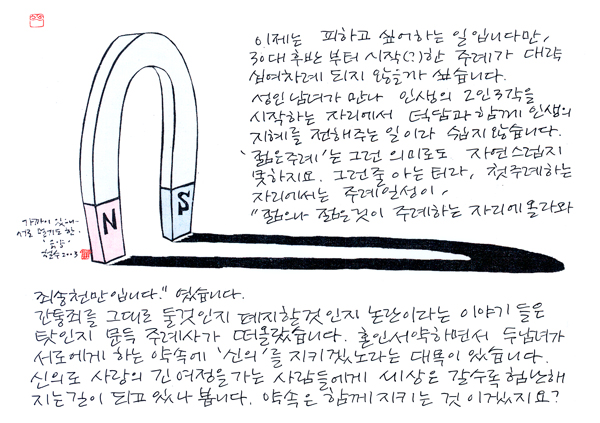 이제는 피하고 싶어하는 일입니다만,
30대 후반 부터 시작(?)한 주례가 대략
십여차례 되지 않을까 싶습니다.
성인남녀가 만나 인생의 2인3각을
시작하는 자리에서 덕담과 함께 인생의
지혜를 전해주는 일이라 쉽지 않습니다.
'젊은주례'는 그런 의미로도 자연스럽지
못하지요. 그런줄 아는 터라, 첫주례하는
자리에서는 주례일성이,
"젊으나 젊은것이 주례하는 자리에 올라와
N S
가까이 있어
서로 당기도 한,
철수 2003
죄송천만입니다." 였습니다.
간통죄를 그대로 둘것인지 폐지할것인지 논란이라는 이야기 들은
탓인지 문득 주례사가 떠올랐습니다. 혼인서약하면서 두남녀가
서로에게 하는 약속에 '신의'를 지키겠노라는 대목이 있습니다.
신의로 사랑의 긴 여정을가는 사람들에게 세상은 갈수록 험난해
지는길이 되고 있나 봅니다. 약속은 함께 지키는 것 이겠지요?